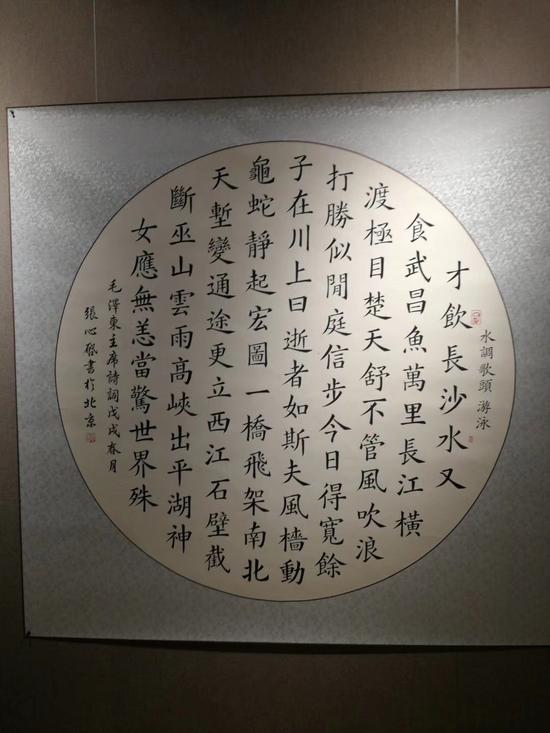 水調歌頭 游泳
才飲長沙水又
食武昌魚萬里長江橫
渡極目楚天舒不管風吹浪
打勝似閒庭信步今日得寬餘
子在川上曰逝者如斯夫風檣動
龜蛇靜起宏圖一橋飛架南北
天塹變通途更立西江石壁截
斷巫山雲雨高峽出平湖神
女應無恙當驚世界殊
毛澤東主席詩詞戊戌春月
張心書於北京